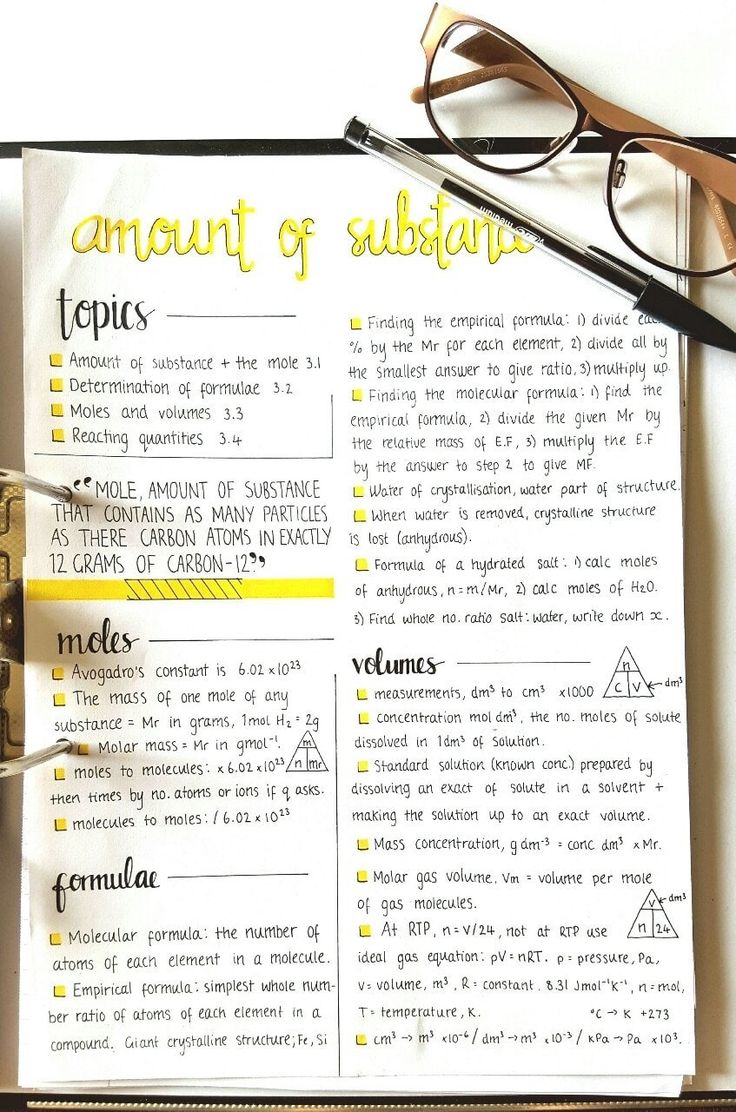 amount of substance
topics
Amount of substance + the mole 3.1
Determination of formulae 3.2
Moles and volumes 3.3
Reacting quantities 3.4
“MOLE, AMOUNT OF SUBSTANCE
THAT CONTAINS AS MANY PARTICLES
AS THERE CARBON ATOMS IN EXACTLY
12 GRAMS OF CARBON-12”
moles
Avogadro's constant is 6.02 x10²³
The mass of one mole of any
substance = Mr in grams, 1mol H₂ = 2g
Molar mass = Mr in gmol⁻¹.
m
n mr
moles to molecules: x 6.02 x10²³
then times by no. atoms or ions if q asks.
molecules to moles: / 6.02 x 10²³
formulae
Molecular formula: the number of
atoms of each element in a molecule.
Empirical formula: simplest whole num-
ber ratio of atoms of each element in a
compound. Giant crystalline structure; Fe, Si
Finding the empirical formula: 1) divide
% by the Mr for each element, 2) divide all by
the smallest answer to give ratio, 3) multiply up.
Finding the molecular formula: 1) find the
empirical formula, 2) divide the given Mr by
the relative mass of E.F, 3) multiply the E.F
by the answer to step 2 to give MF.
Water of crystallisation, water part of structure.
When water is removed, crystalline structure
is lost (anhydrous).
Formula of a hydrated salt: 1) calc moles
of anhydrous, n = m/Mr, 2) calc moles of H₂O.
3) Find whole no. ratio salt: water, write down x.
volumes
n
C V ← dm³
measurements, dm³ to cm³ x1000
concentration mol dm³, the no. moles of solute
dissolved in 1dm³ of solution.
Standard solution (known conc.) prepared by
dissolving an exact of solute in a solvent +
making the solution up to an exact volume.
Mass concentration, g dm⁻³ = conc dm³ x Mr.
Molar gas volume. Vm = volume per mole
of gas molecules.
V ← dm³
n 24
At RTP, n = V/24, not at RTP use
ideal gas equation: pV = nRT. p = pressure, Pa,
V = volume, m³, R = constant. 8.31 Jmol⁻¹K⁻¹, n = mol,
T = temperature, K. °C → K +273
cm³ → m³ x10⁻⁶ / dm³ → m³ x10⁻³ / kPa → Pa x10³.
medium